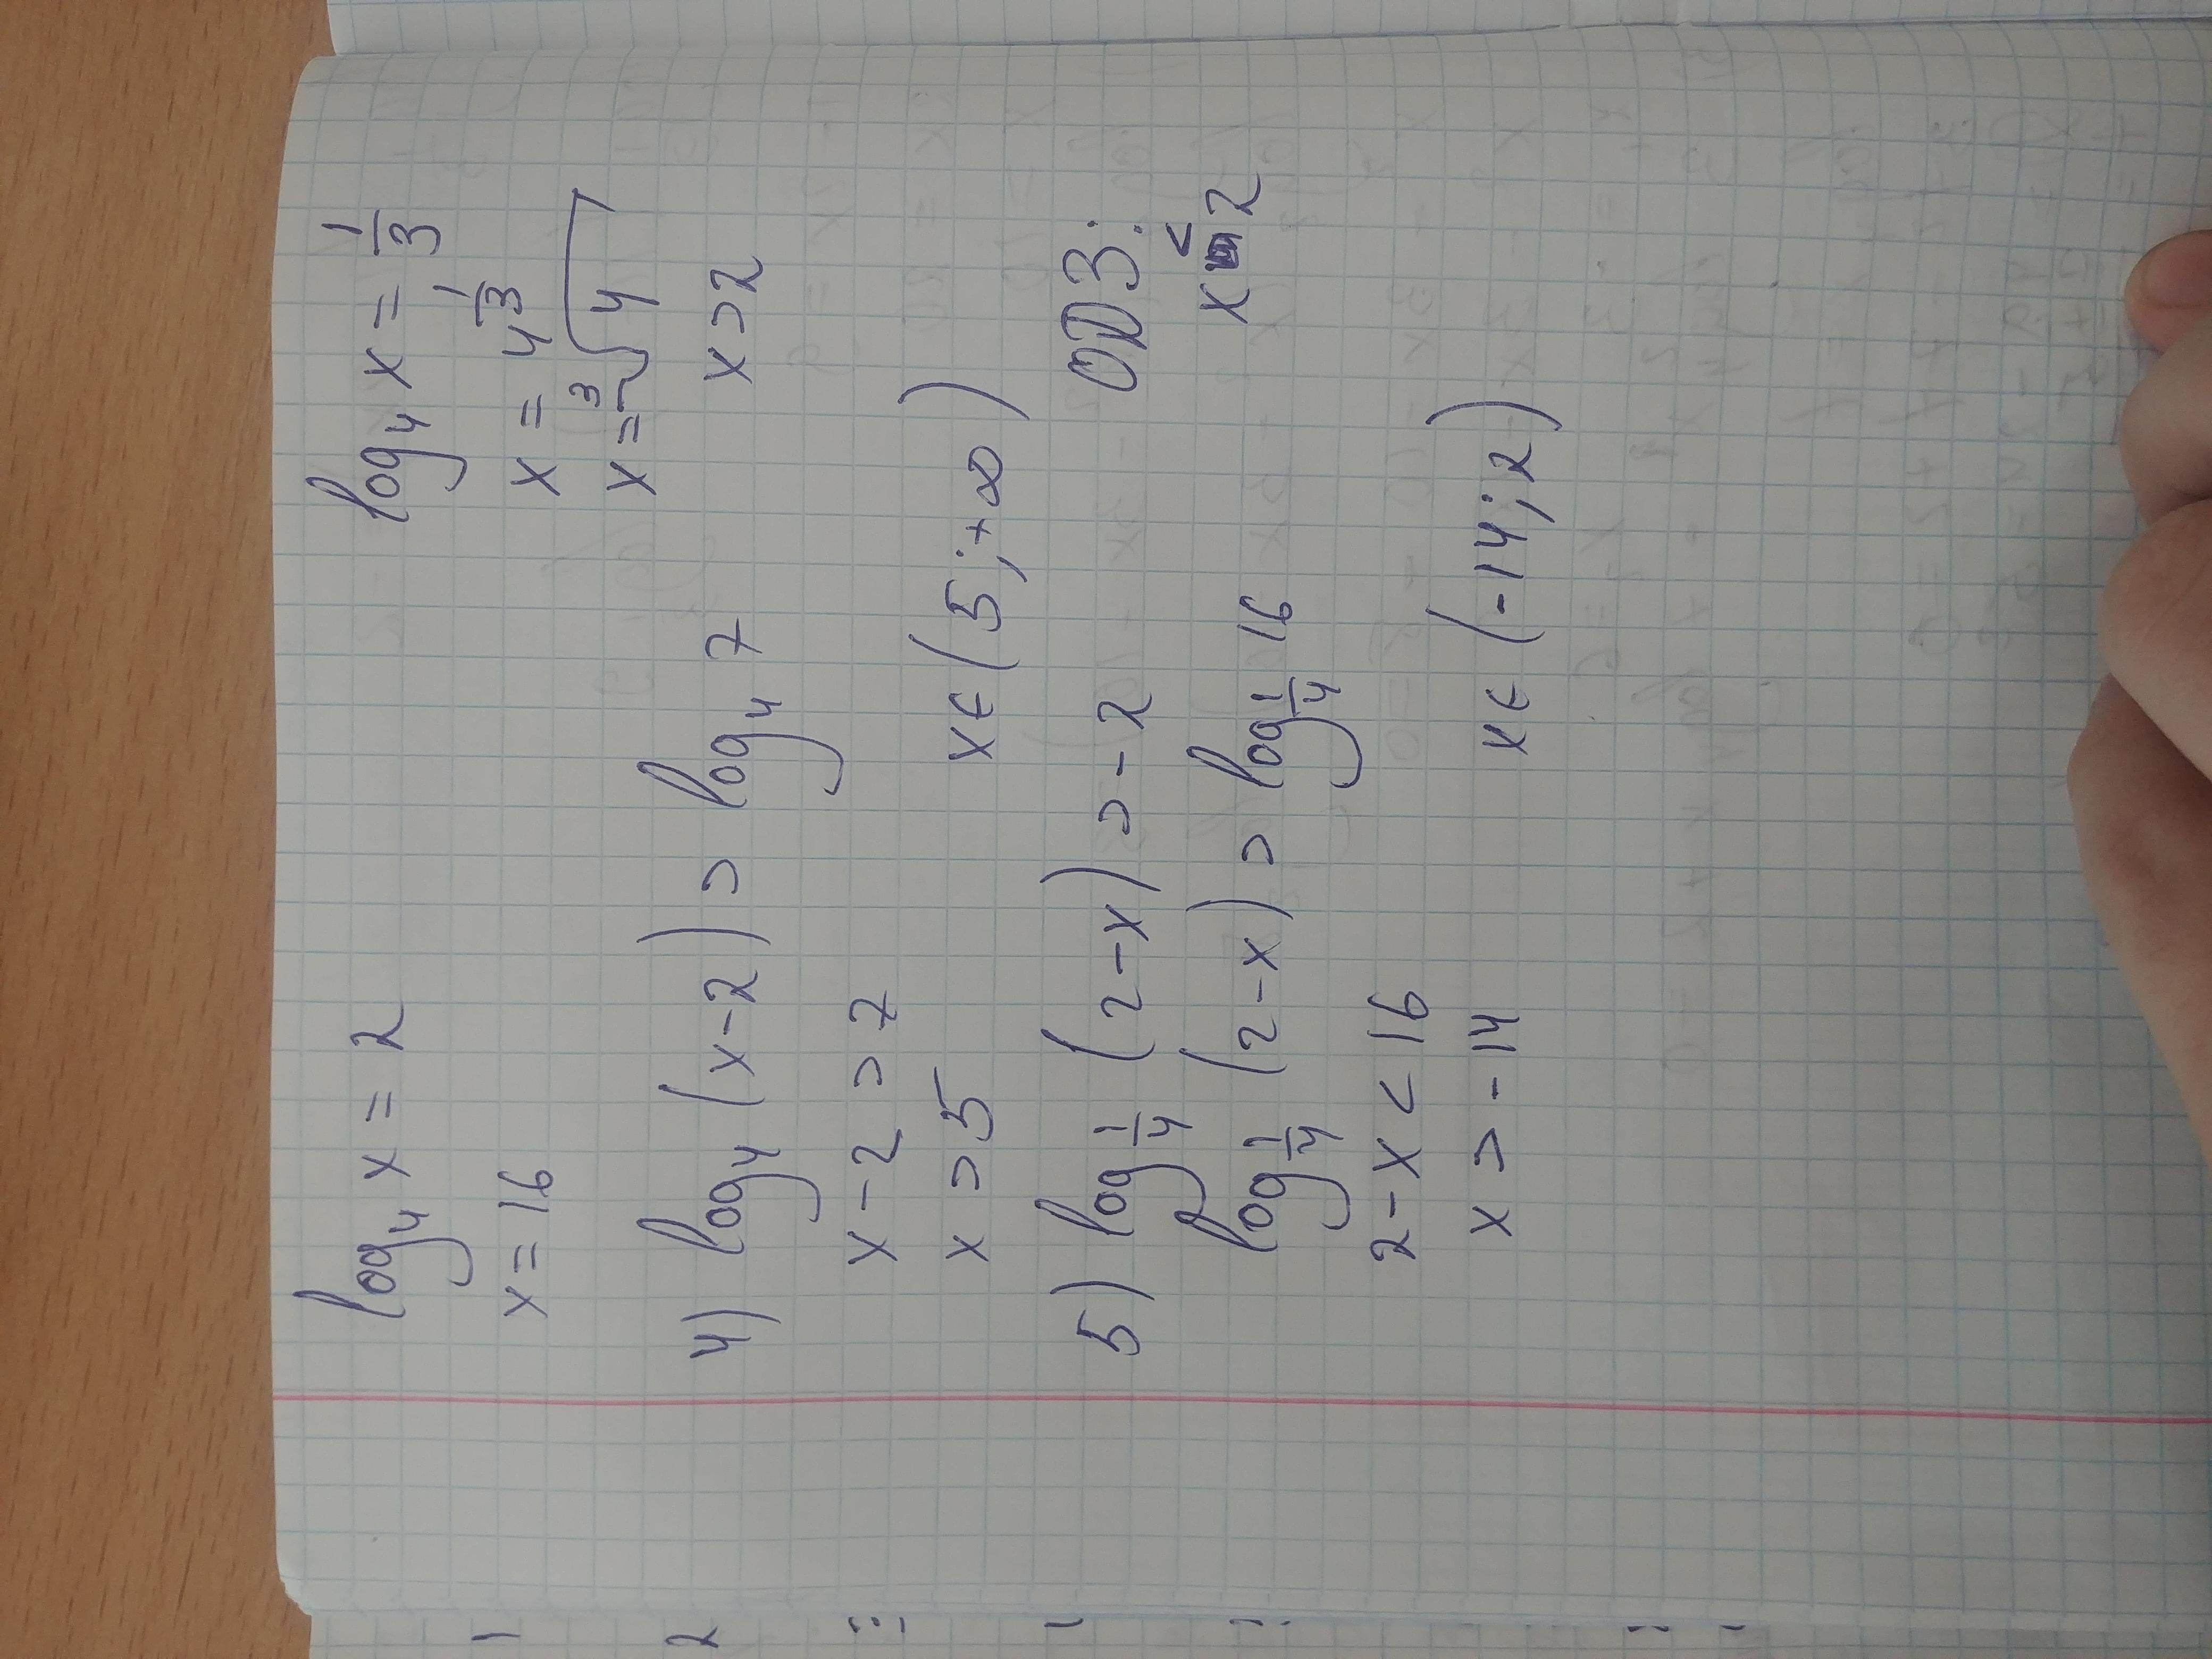 log₄ x = 2 log₄ x = 1/3
x = 16 x = 4^(1/3)
x = ³√4
4) log₄ (x-2) > log₄ 7 x>2
x-2>7
x>5 x∈(5;+∞)
5) log_(1/4) (2-x) > -2 ОДЗ:
log_(1/4) (2-x) > log_(1/4) 16 x<2
2-x<16
x>-14 x∈(-14;2)